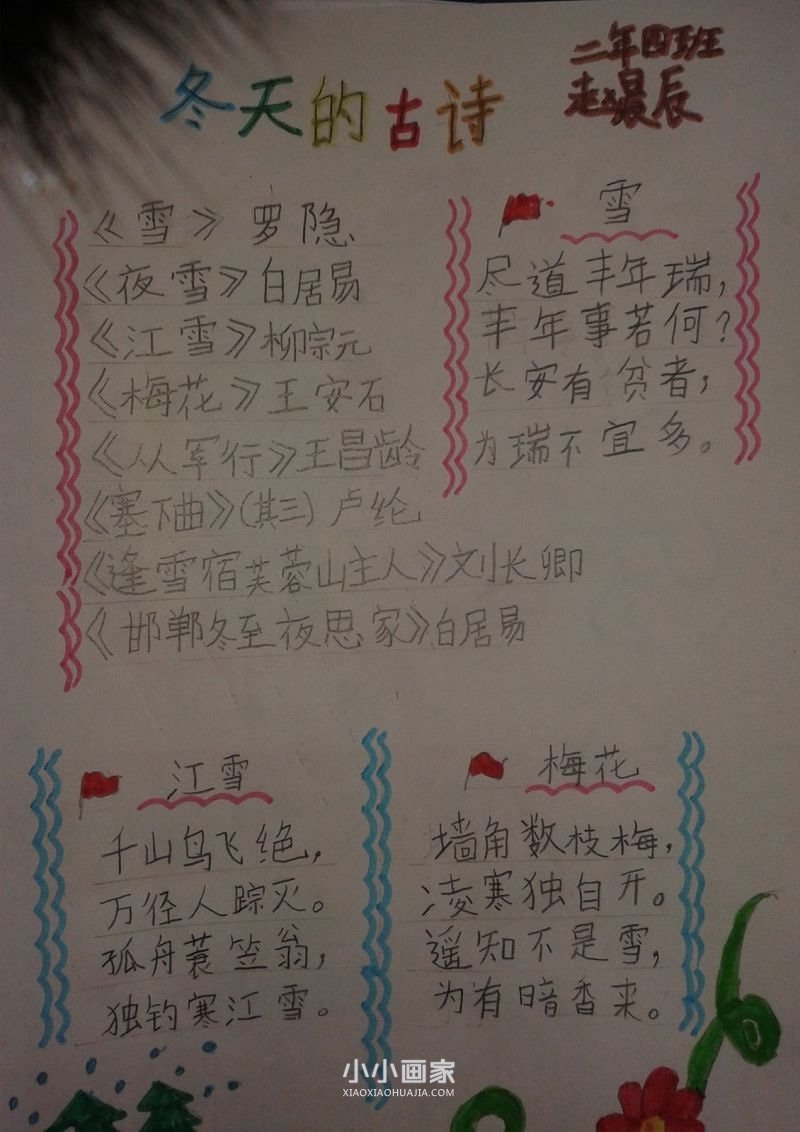 冬天的古诗
二年四班
赵晨辰
《雪》罗隐
《夜雪》白居易
《江雪》柳宗元
《梅花》王安石
《从军行》王昌龄
《塞下曲》(其三)卢纶
《逢雪宿芙蓉山主人》刘长卿
《邯郸冬至夜思家》白居易
雪
尽道丰年瑞,
丰年事若何?
长安有贫者,
为瑞不宜多。
江雪
千山鸟飞绝,
万径人踪灭。
孤舟蓑笠翁,
独钓寒江雪。
梅花
墙角数枝梅,
凌寒独自开。
遥知不是雪,
为有暗香来。
小小画家
XIAOXIAOHUAJIA.COM